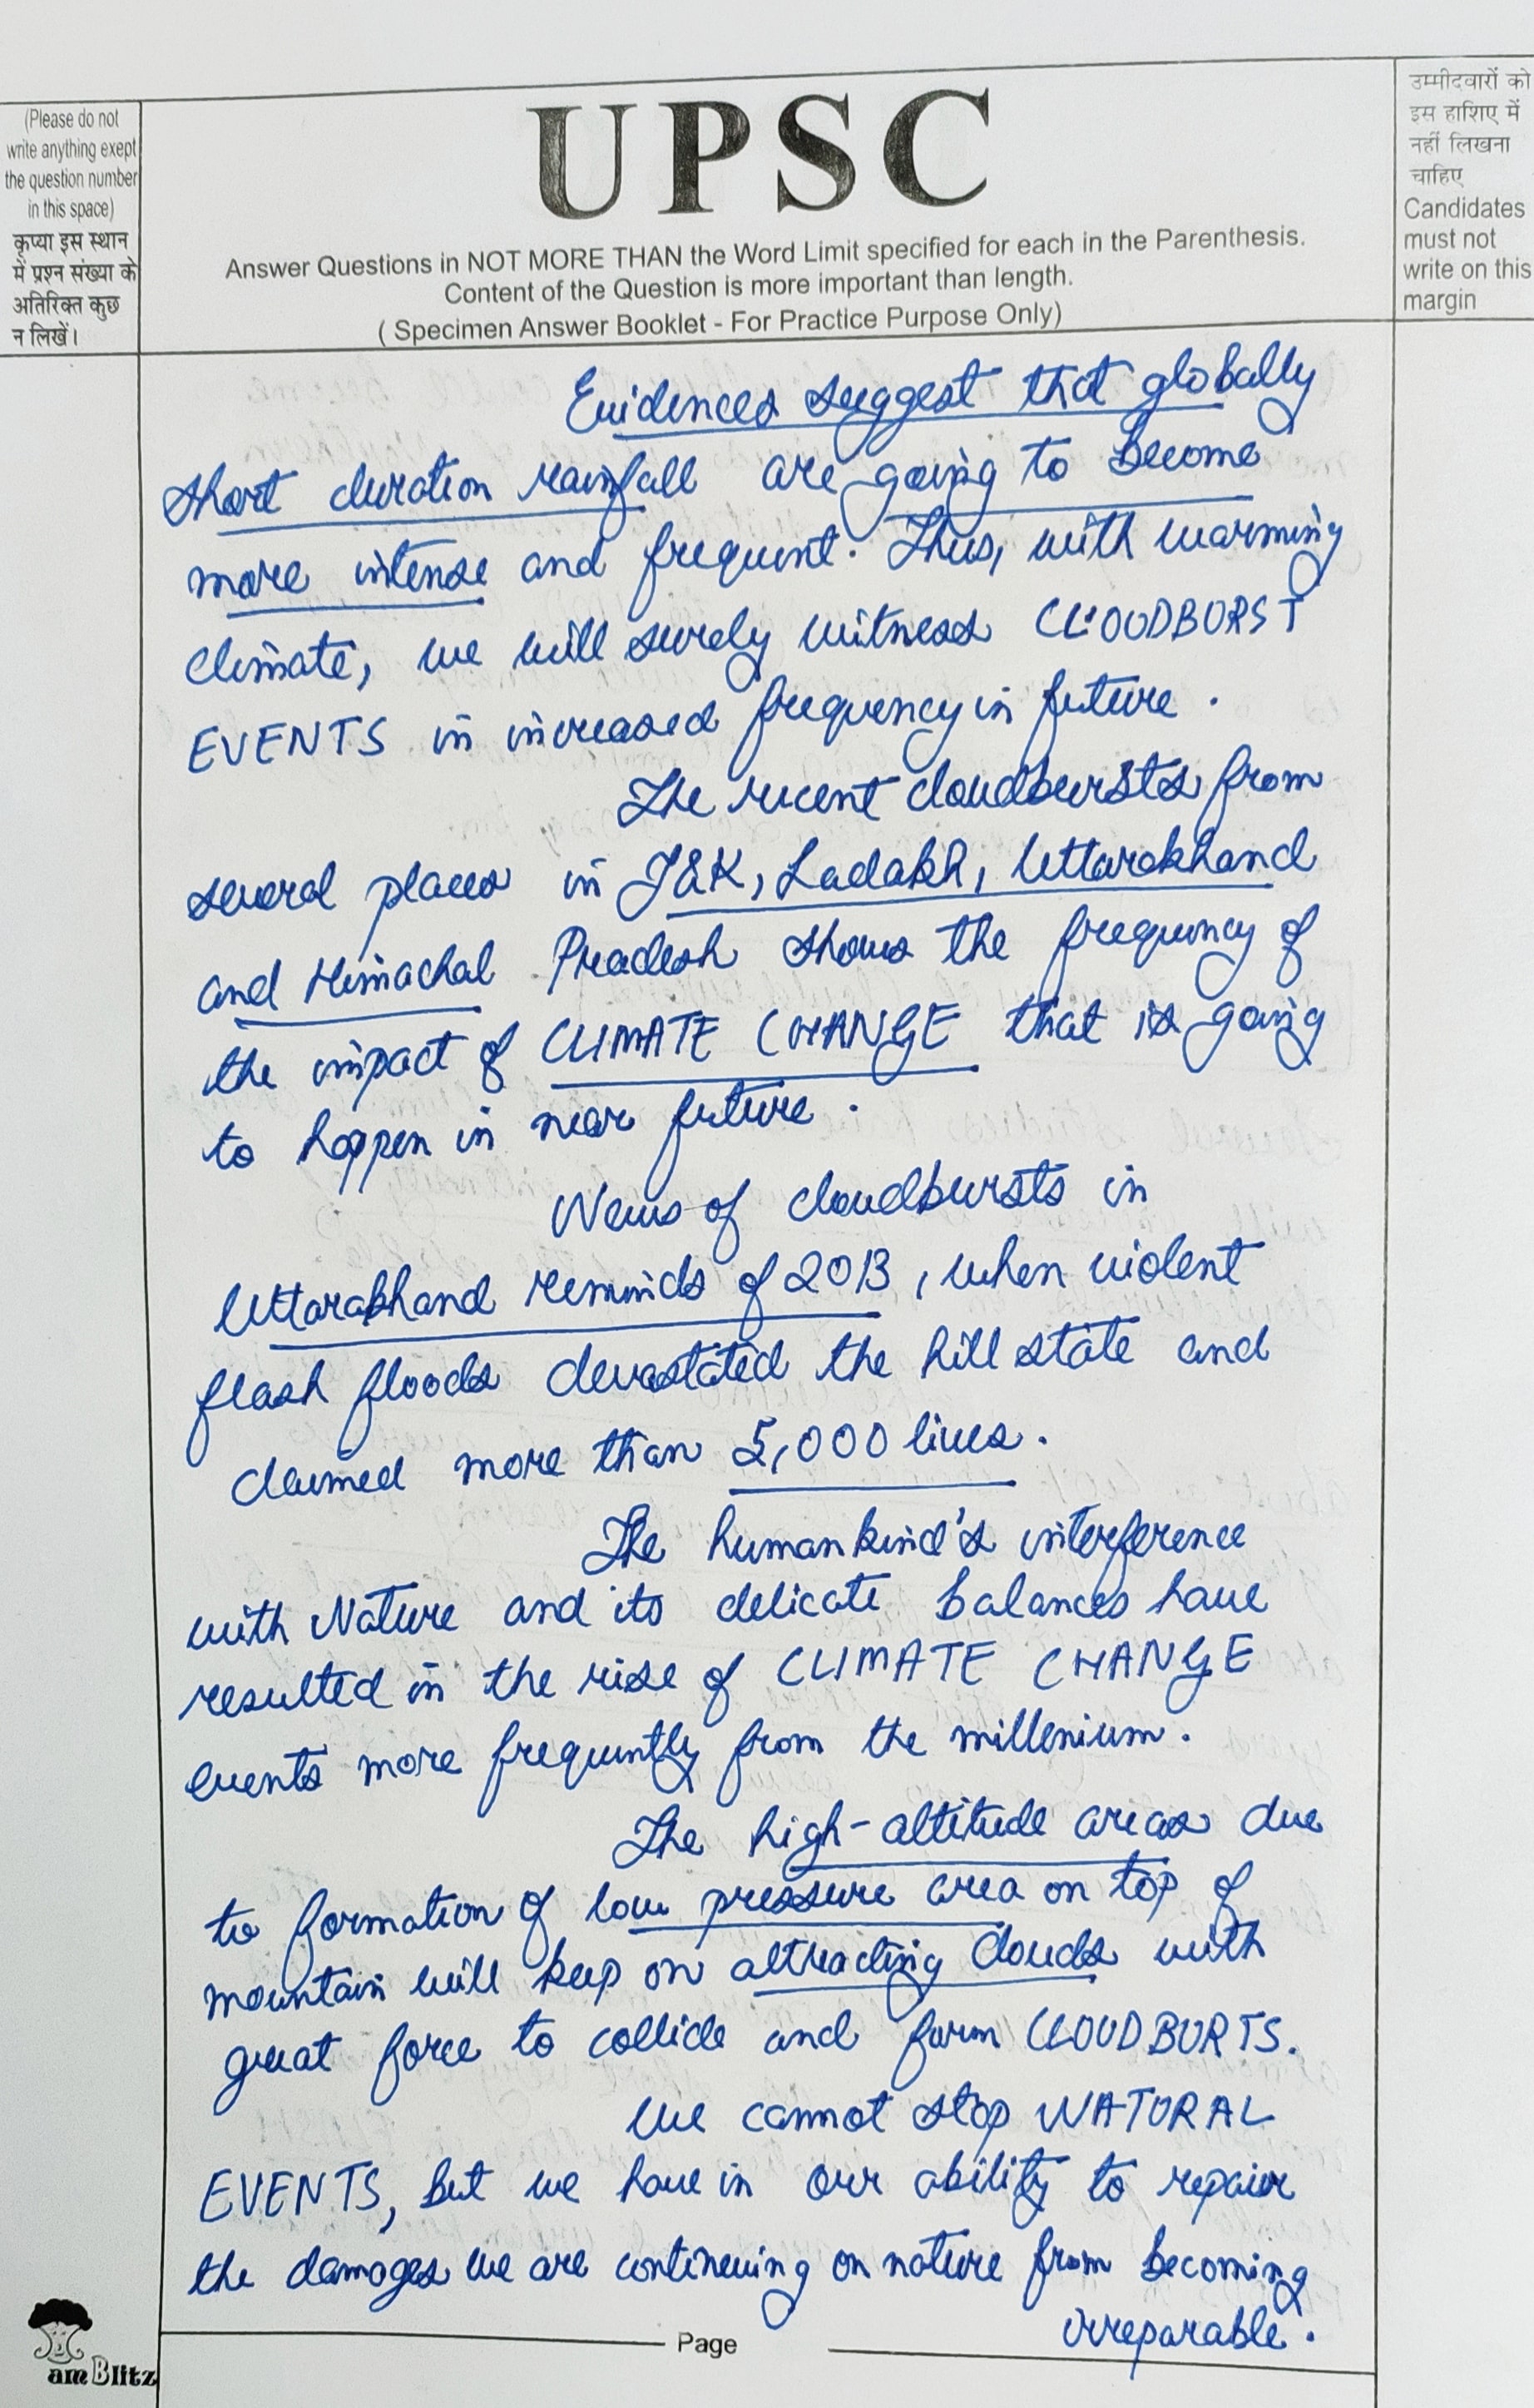 (Please do not
write anything exept
the question number
in this space)
कृप्या इस स्थान
में प्रश्न संख्या के
अतिरिक्त कुछ
न लिखें।
UPSC
Answer Questions in NOT MORE THAN the Word Limit specified for each in the Parenthesis.
Content of the Question is more important than length.
( Specimen Answer Booklet - For Practice Purpose Only)
उम्मीदवारों को
इस हाशिए में
नहीं लिखना
चाहिए
Candidates
must not
write on this
margin
Evidences suggest that globally
short duration rainfall are going to become
more intense and frequent. Thus, with warming
climate, we will surely witness CLOUDBURST
EVENTS in increased frequency in future.
The recent cloudbursts from
several places in J&K, Ladakh, Uttarakhand
and Himachal Pradesh shows the frequency of
the impact of CLIMATE CHANGE that is going
to happen in near future.
News of cloudbursts in
Uttarakhand reminds of 2013, when violent
flash floods devastated the hill state and
claimed more than 5,000 lives.
The humankind's interference
with Nature and its delicate balances have
resulted in the rise of CLIMATE CHANGE
events more frequently from the millenium.
The high-altitude areas due
to formation of low pressure area on top of
mountain will keep on attracting clouds with
great force to collide and form CLOUDBURTS.
We cannot stop NATURAL
EVENTS, but we have in our ability to repair
the damages we are continuing on nature from becoming
irreparable.
Page
amBlitz